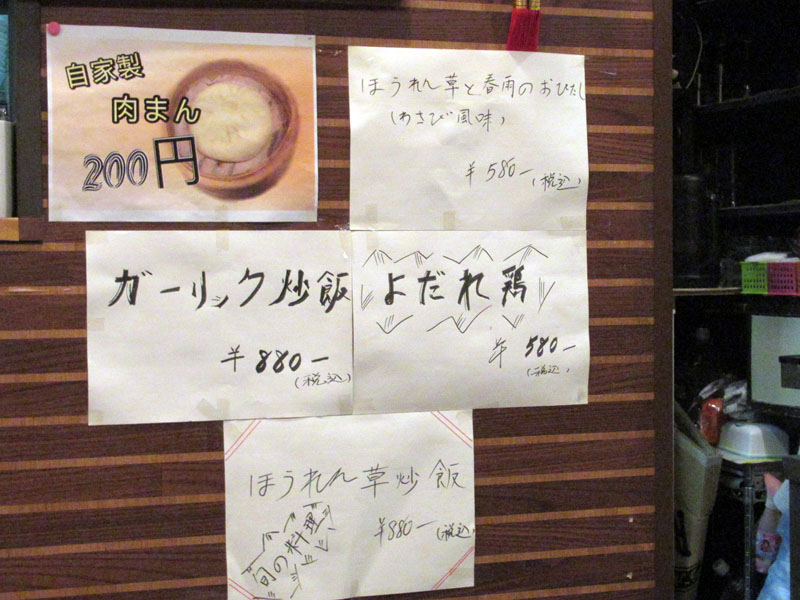 自家製
肉まん
200円
ほうれん草と春雨のおひたし
(わさび風味)
¥580-(税込)
ガーリック炒飯
¥880-
(税込)
よだれ鶏
¥580-
(税込)
ほうれん草炒飯
旬の料理
¥880-(税込)